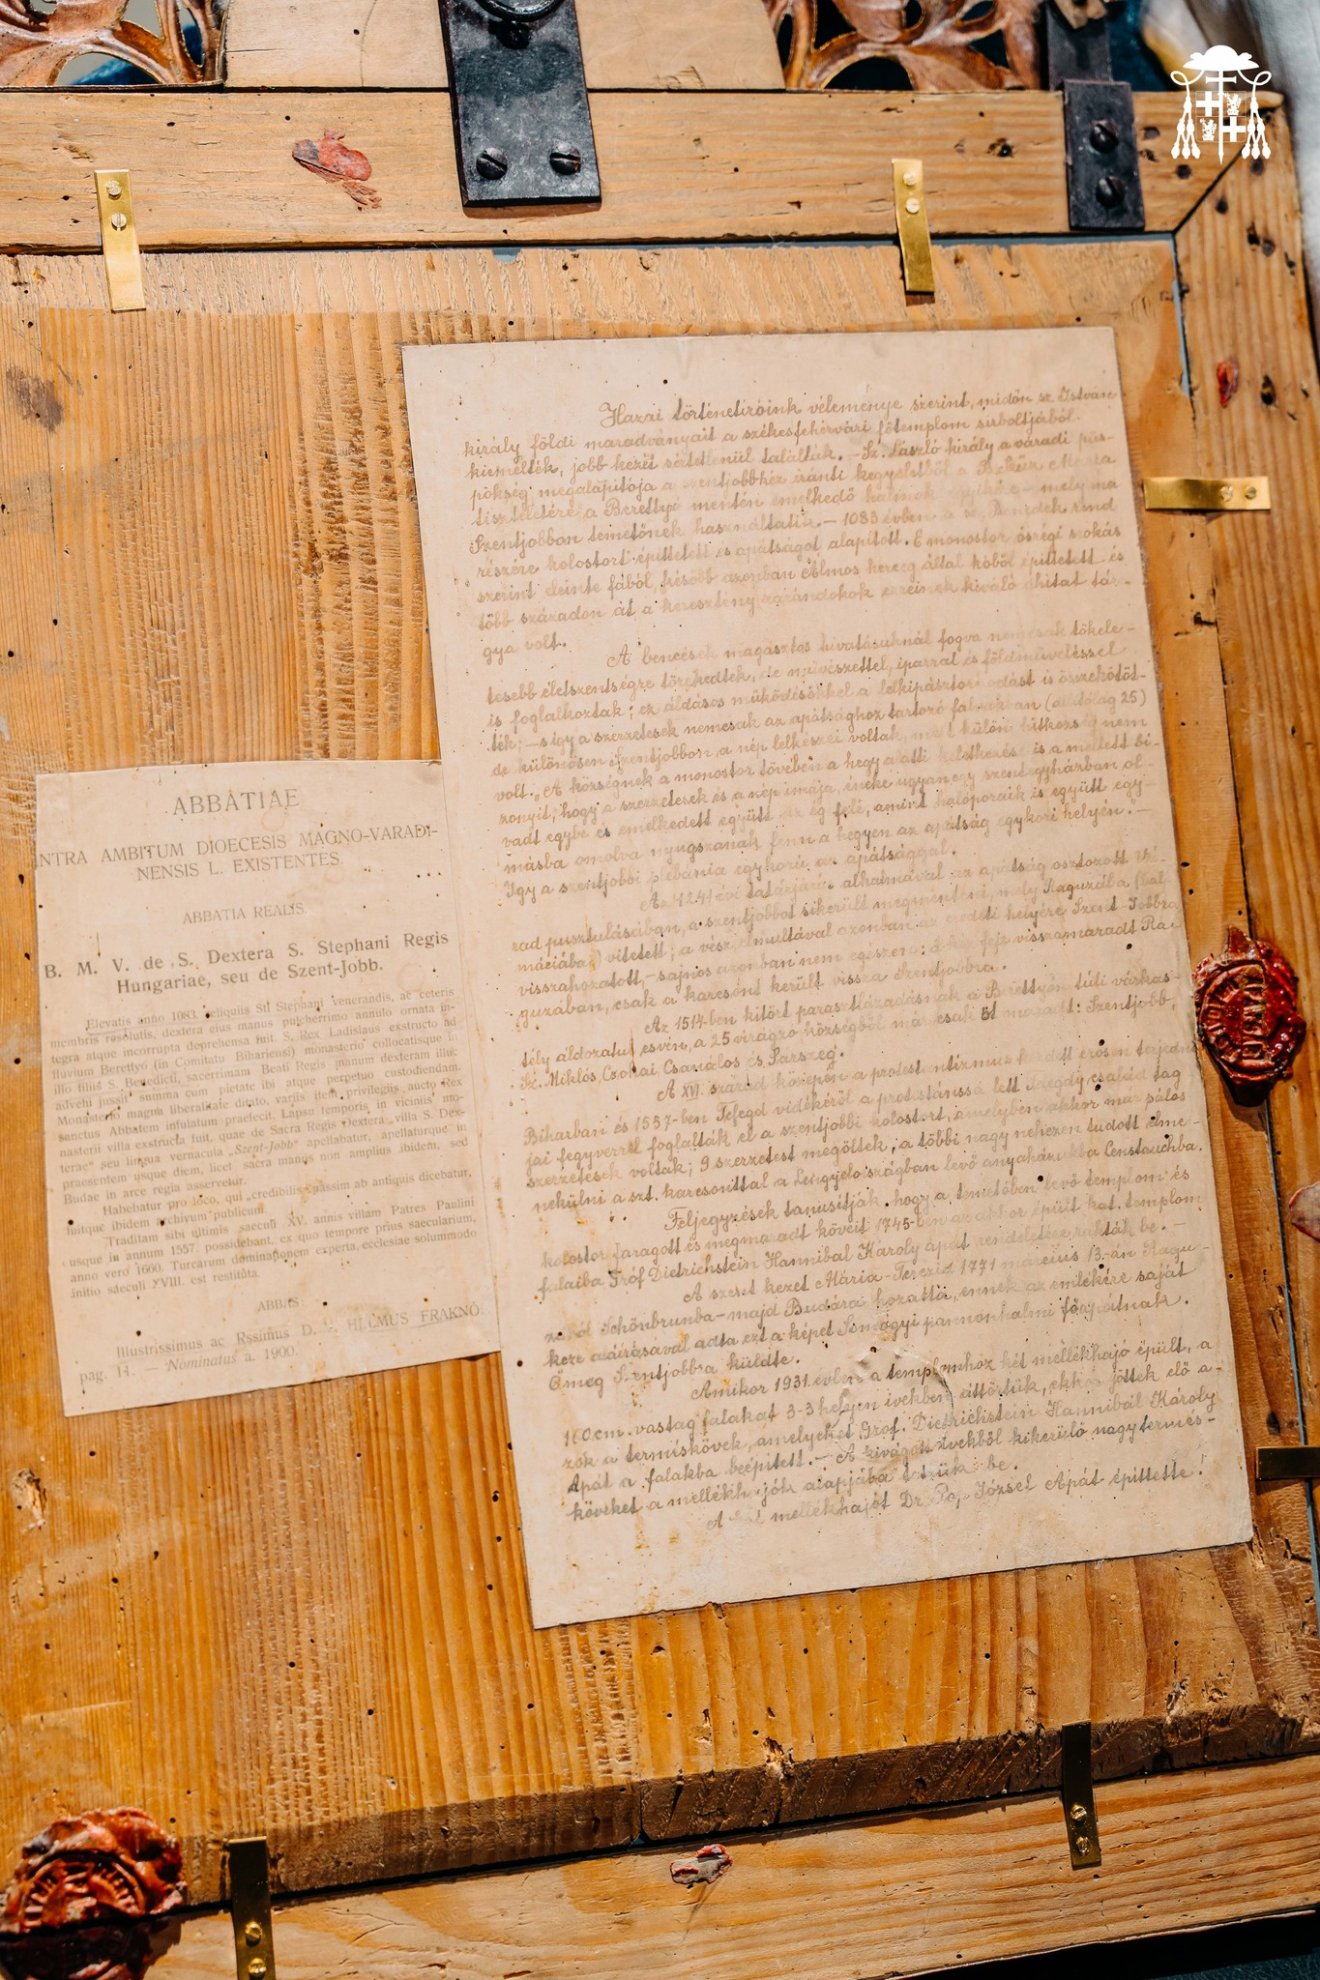 ABBATIAE
INTRA AMBITUM DIOECESIS MAGNO-VARADI-
NENSIS L. EXISTENTES.
ABBATIA REALIS.
B. M. V. de S. Dextera S. Stephani Regis
Hungariae, seu de Szent-Jobb.
Elevatis anno 1083. reliquiis Sti Stephani venerandis, ac ceteris
membris resolutis, dextera eius manus pulcherrimo annulo ornata in-
tegra atque incorrupta deprehensa fuit. S. Rex Ladislaus exstructo ad
fluvium Berettyó (in Comitatu Bihariensi) monasterio collocatisque in
illo filiis S. Benedicti, sacerrimam Beati Regis manum dexteram illuc
advehi jussit summa cum pietate ibi atque perpetuo custodiendam.
Monasterio magna liberalitate ditato, variis item privilegiis aucto Rex
sanctus Abbatem infulatum praefecit. Lapsu temporis in viciniis mo-
nasterii villa exstructa fuit, quae de Sacra Regis Dextera „villa S. Dex-
terae“ seu lingua vernacula „Szent-Jobb“ apellabatur, apellaturque in
praesentem usque diem, licet sacra manus non amplius ibidem, sed
Budae in arce regia asservetur.
Habebatur pro loco, qui „credibilis“ passim ab antiquis dicebatur,
fuitque ibidem archivum publicum.
Traditam sibi ultimis saeculi XV. annis villam Patres Paulini
usque in annum 1557. possidebant, ex quo tempore prius saecularium,
anno vero 1660. Turcarum dominationem experta, ecclesiae solummodo
initio saeculi XVIII. est restituta.
ABBAS
Illustrissimus ac Rssimus D. HELMUS FRAKNÓI
pag. 11. — Nominatus a. 1900.
Hazai történetiróink véleménye szerint, midőn sz. István
király földi maradványait a székesfehérvári főtemplom sirboltjából
kiemelték, jobb kezét sértetlenül találták. — Sz. László király a váradi püs-
pökség megalapitója a szentjobbhoz iránti kegyeletből a Bold. Szűz Mária
tiszteletére a Berettyó mentén emelkedő halmok — mely ma
Szentjobbon temetőnek használtatik — 1083 évben a sz. Benedek rend
részére kolostort épittetett és apátságot alapitott. E monostor ősrégi szokás
szerint eleinte fából, később azonban Álmos herceg által kőből épittetett és
több századon át a keresztény zarándokok ezreinek kiváló áhitat tár-
gya volt.
A bencések magasztos hivatásuknál fogva nemcsak tökéle-
tesebb életszentségre törekedtek, de művészettel, iparral és földműveléssel
is foglalkoztak; ez áldásos működésükkel a lelkipásztorkodást is összekötöt-
ték; — s igy a szerzetesek nemcsak az apátsághoz tartozó falvakban (állitólag 25)
de különösen Szentjobbon a nép lelkészei voltak, mert külön hitközség nem
volt. „A községnek a monostor tövében a hegy alatti keletkezés is a mellett bi-
zonyit, hogy a szerzetesek és a nép imája, éneke ugyanegy szentegyházban ol-
vadt egybe és emelkedett együtt az ég felé, amint halóporaik is együtt egy-
másba omolva nyugszanak fenn a hegyen az apátság egykori helyén.” —
Igy a szentjobbi plébánia egykorú az apátsággal.
Az 1241 évi tatárjárás alkalmával az apátság osztozott Vá-
rad pusztulásában, a szentjobbot sikerült megmenteni, mely Raguzába (Dal-
máciába) vitetett; a vész elmultával azonban az eredeti helyére Szent-Jobbra
visszahozatott, — sajnos azonban nem egészen: a kézfej visszamaradt Ra-
guzában, csak a karcsont került vissza Szentjobbra.
Az 1514-ben kitört parasztlázadásnak a Berettyón túli várkas-
tély áldozatul esvén, a 25 virágzó községből már csak 5 maradt: Szentjobb,
Sz. Miklós, Csohai, Csanálos és Sárszeg.
A XVI. század közepén a protestántizmus kezdett erősen terjedni
Biharban és 1557-ben Telegd vidékéről a protestánssá lett Telegdy család tag
jai fegyverrel foglalták el a szentjobbi kolostort, amelyben akkor már pálos
szerzetesek voltak; 9 szerzetest megöltek, a többi nagy nehezen tudott elme-
nekülni a szt. karcsonttal a Lengyelországban levő anyaházukba Censtochba.
Feljegyzések tanusitják, hogy a temetőben levő templom és
kolostor faragott és megmaradt köveit 1745-ben az akkor épült kat. templom
falaiba Gróf Dietrichstein Hannibál Károly apát rendeletére rakták be. —
A szeset kezet Mária-Terézia 1771 március 13.-án Ragu-
zából Schönbrunba — majd Budára hozatta, ennek az emlékére saját
keze aláirásával adta ezt a képet Somogyi pannonhalmi főapátnak.
Ő meg Szentjobbra küldte.
Amikor 1931 évben a templomhoz két mellékhajó épült, a
160 cm. vastag falakat 3-3 helyen ivekben áttörtük, ekkor jöttek elő a-
zok a terméskövek, amelyeket Gróf. Dietrichstein Hannibál Károly
Apát a falakba beépitett. — A kivágott ivekből kikerülő nagy termés-
köveket a mellékhajók alapjába tettük be.
A két mellékhajót Dr. Pop József Apát épittette!